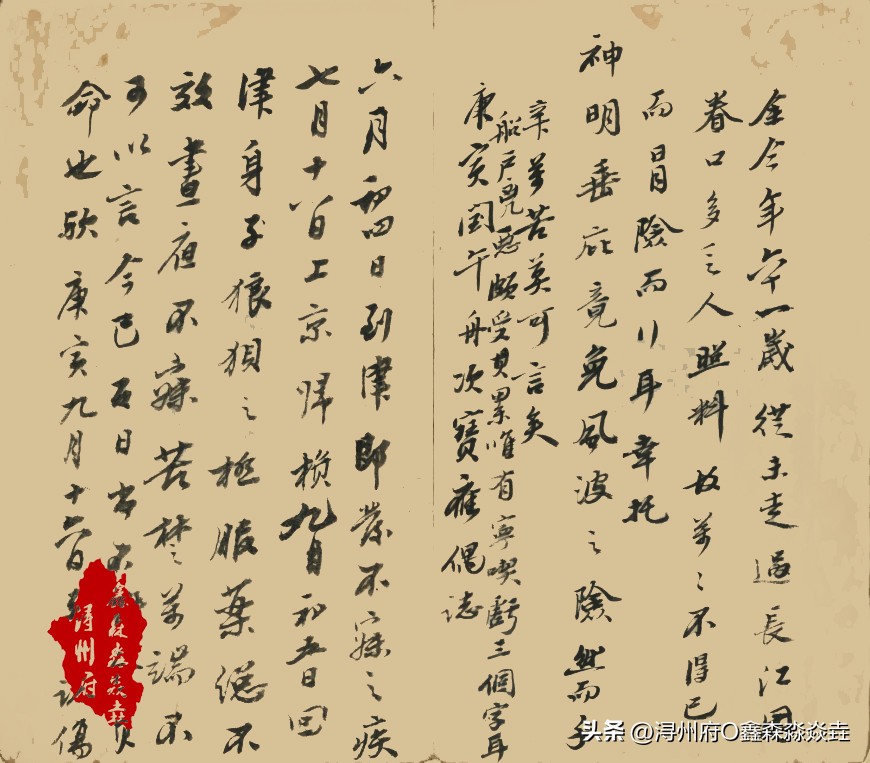 余今年六十一歲從未走過長江因
眷口多乏人照料故萬〻不得已
而冒險而行耳幸托
神明垂庇竟免風波之險然而千
辛萬苦莫可言矣
船戶兇惡頗受其累唯有寧喫虧三個字耳
庚寅閏午舟次寶應偶誌
六月初四日到津即發不寐之疾
七月十八日上京歸九月初五日回
津身子狼狽之極服藥總不
效晝夜不寐苦楚萬端不
可以言今已百日尚
命也歟庚寅九月十六日傷
鑫森淼焱垚
浔州府
头条 @浔州府O鑫森淼焱垚